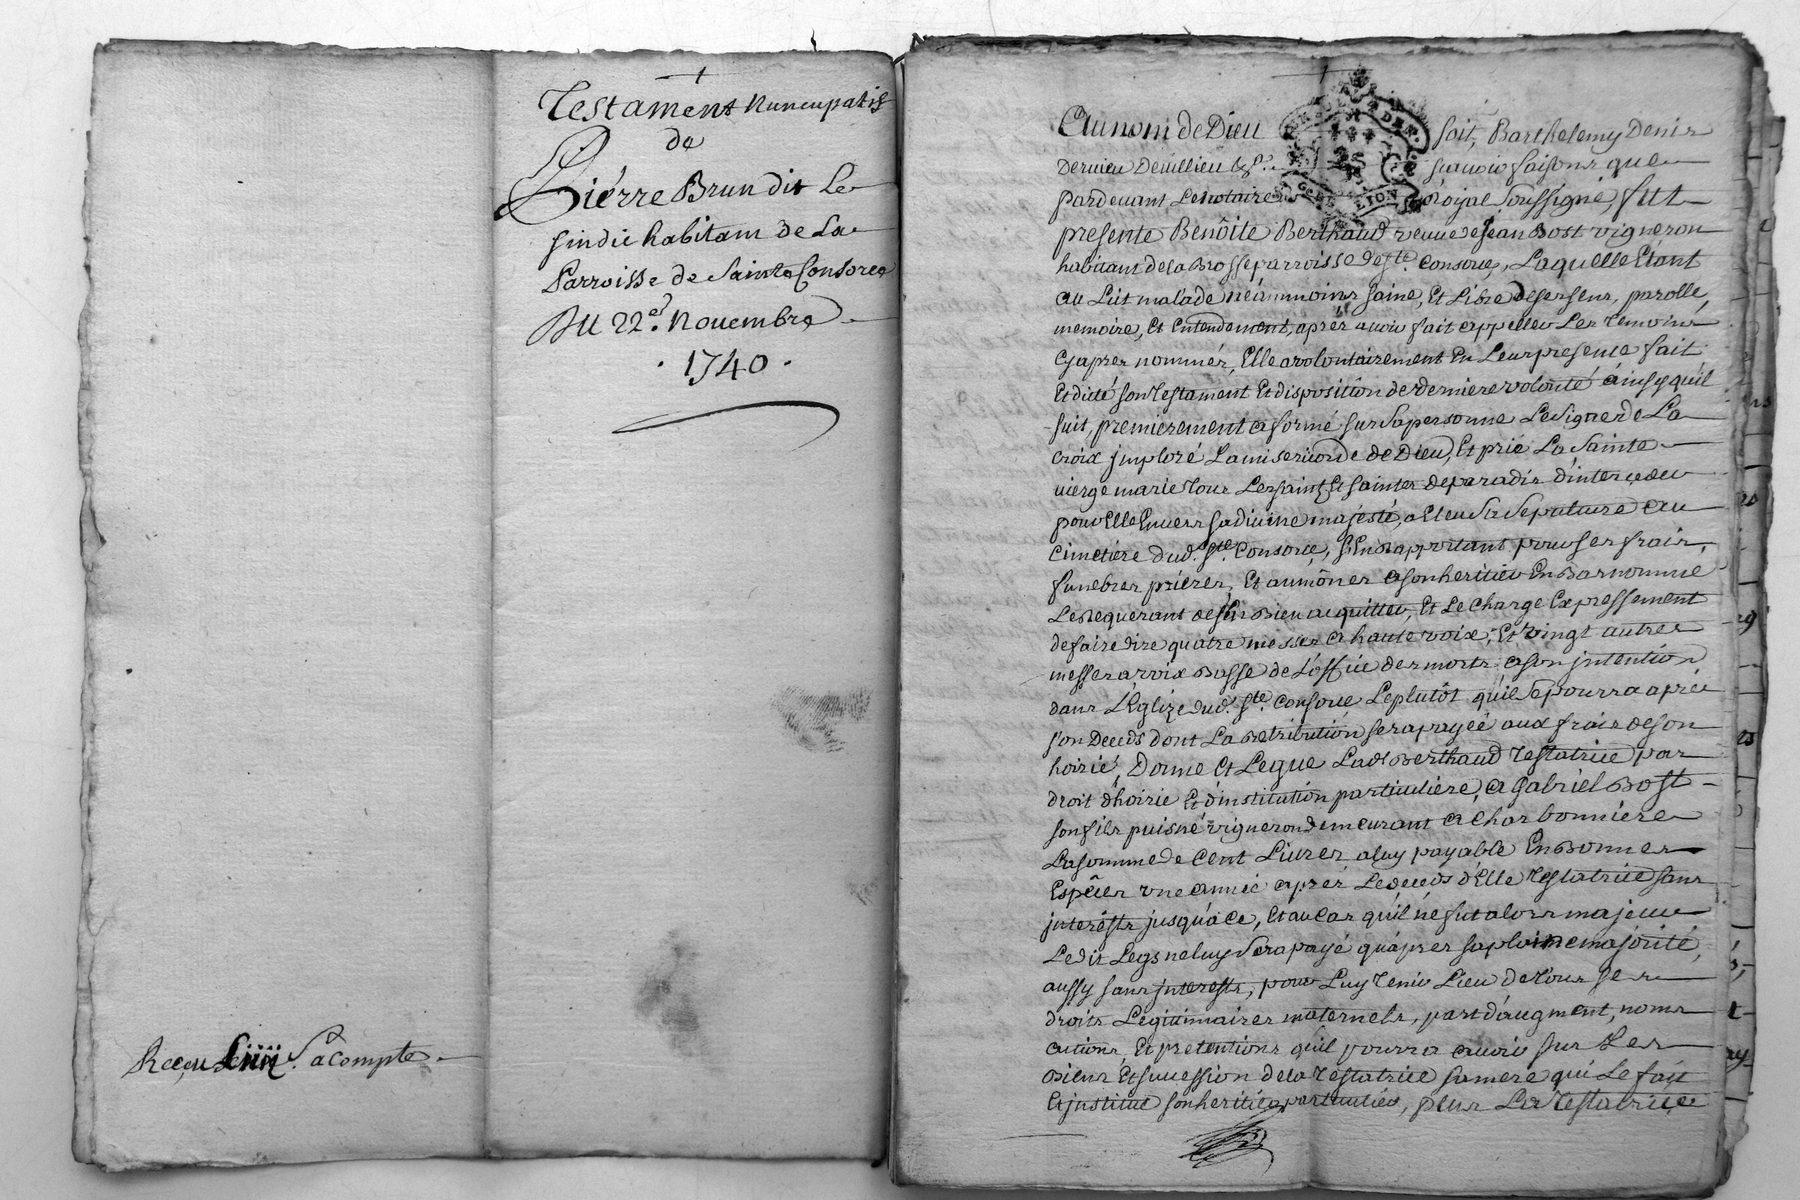 Testament Nuncupatif
de
Piérre Brun dit Le
sindic habitant de La
Parroisse de Sainte Consorce
Du 22e. Novembre
. 1740 .
Receu Liiii s. a compte
Au nom de Dieu soit, Barthelemy Denis
Dervieu Devillieu sçavoir faisons que
pardevant Le notaire Roÿal soussigné, fut
presente Benôite Berthaud veuve de Jean Bost vigneron
habitant de La Brosse parroisse de ste. Consorce, Laquelle Etant
au Lit malade néanmoins saine, Et Libre de ses sens, parolle,
memoire, Et Entendement, aprés avoir fait appeller Les temoins
cy apres nommés, Elle a volontairement En Leur presence fait
Et dicté son testament Et disposition de derniere volonté ainsy qu'il
suit, premierement a formé sur sa personne Le signe de La
croix jmploré La misericorde de Dieu, Et prié La Sainte
vierge marie tous Les saints Et saintes de paradis d'interceder
pour Elle Envers sa divine majesté, a Eleu sa sepulture au
cimetiere dud. ste. Consorce, s'En rapportant pour ses frais
funebres priéres, Et aumônes a son heritier En Bas nommé
Le Requerant de s'En Bien acquitter, Et Le charge Expressement
de faire dire quatre messes a haute voix, Et vingt autres
messes a voix Basse de L'office des morts a son jntention
dans L'Eglize dud. ste. Consorce Le plutôt qu'il se pourra aprés
son Deceds dont La Retribution sera payée aux frais de son
hoirié, Donne Et Legue Lad. Berthaud testatrice par
droit d'hoirie Et d'institution particuliere, a Gabriel Bost
son fils puisné vigneron demeurant a Charbonniére
La somme de Cent Livres a luy payable En Bonnes
Espéces une année aprés Le deceds d'Elle testatrice sans
jnterêsts jusqu'a ce, Et au cas qu'il ne fut alors majeur
Ledit Legs ne luy sera payé qu'apres sa pleine majorité,
aussy sans jnterests, pour Luy tenir Lieu de tous ses
droits Légitimaires maternels, part d'augment, noms
actions, Et pretentions qu'il pourra avoir sur Les
Biens Et succession de La testatrice sa mere qui Le fait
Et jnstitue son heritier particulier, plus La testatrice